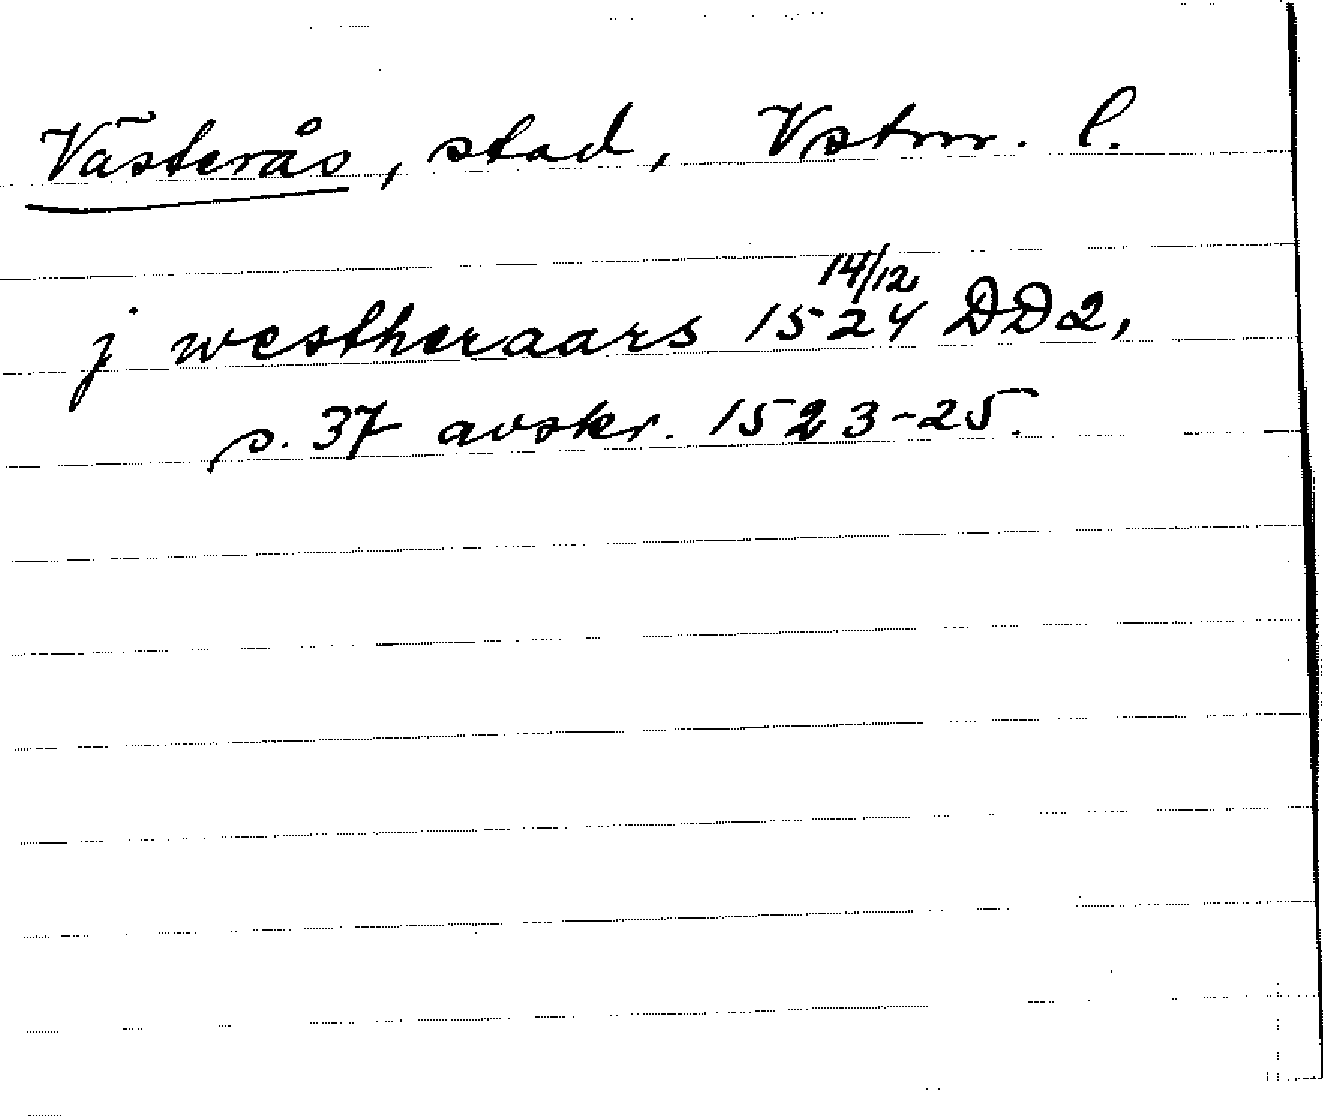 Västerås, stad, Vstm. l.
j westheraars 1524 14/12 DD2,
s. 37 avskr. 1523-25.